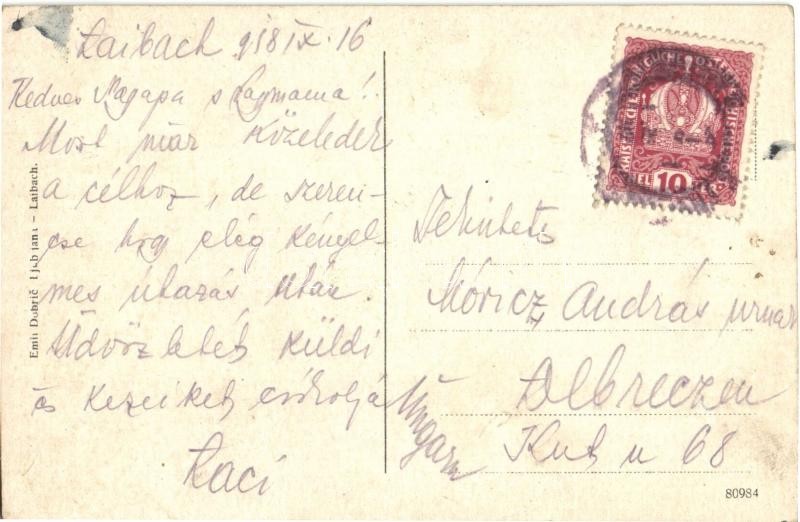 Laibach 918 IX. 16
Kedves Nagapa s Nagymama!
Most már közeledek
a célhoz, de szeren-
cse hogy elég kényel-
mes útazás után.
Üdvözletét küldi
és kezeiket csókolja
Laci
Emil Dobrič Ljubljana – Laibach.
10
Tekintetes
Móricz András urnak
Debreczen
Kut u 68
Ungarn
80984